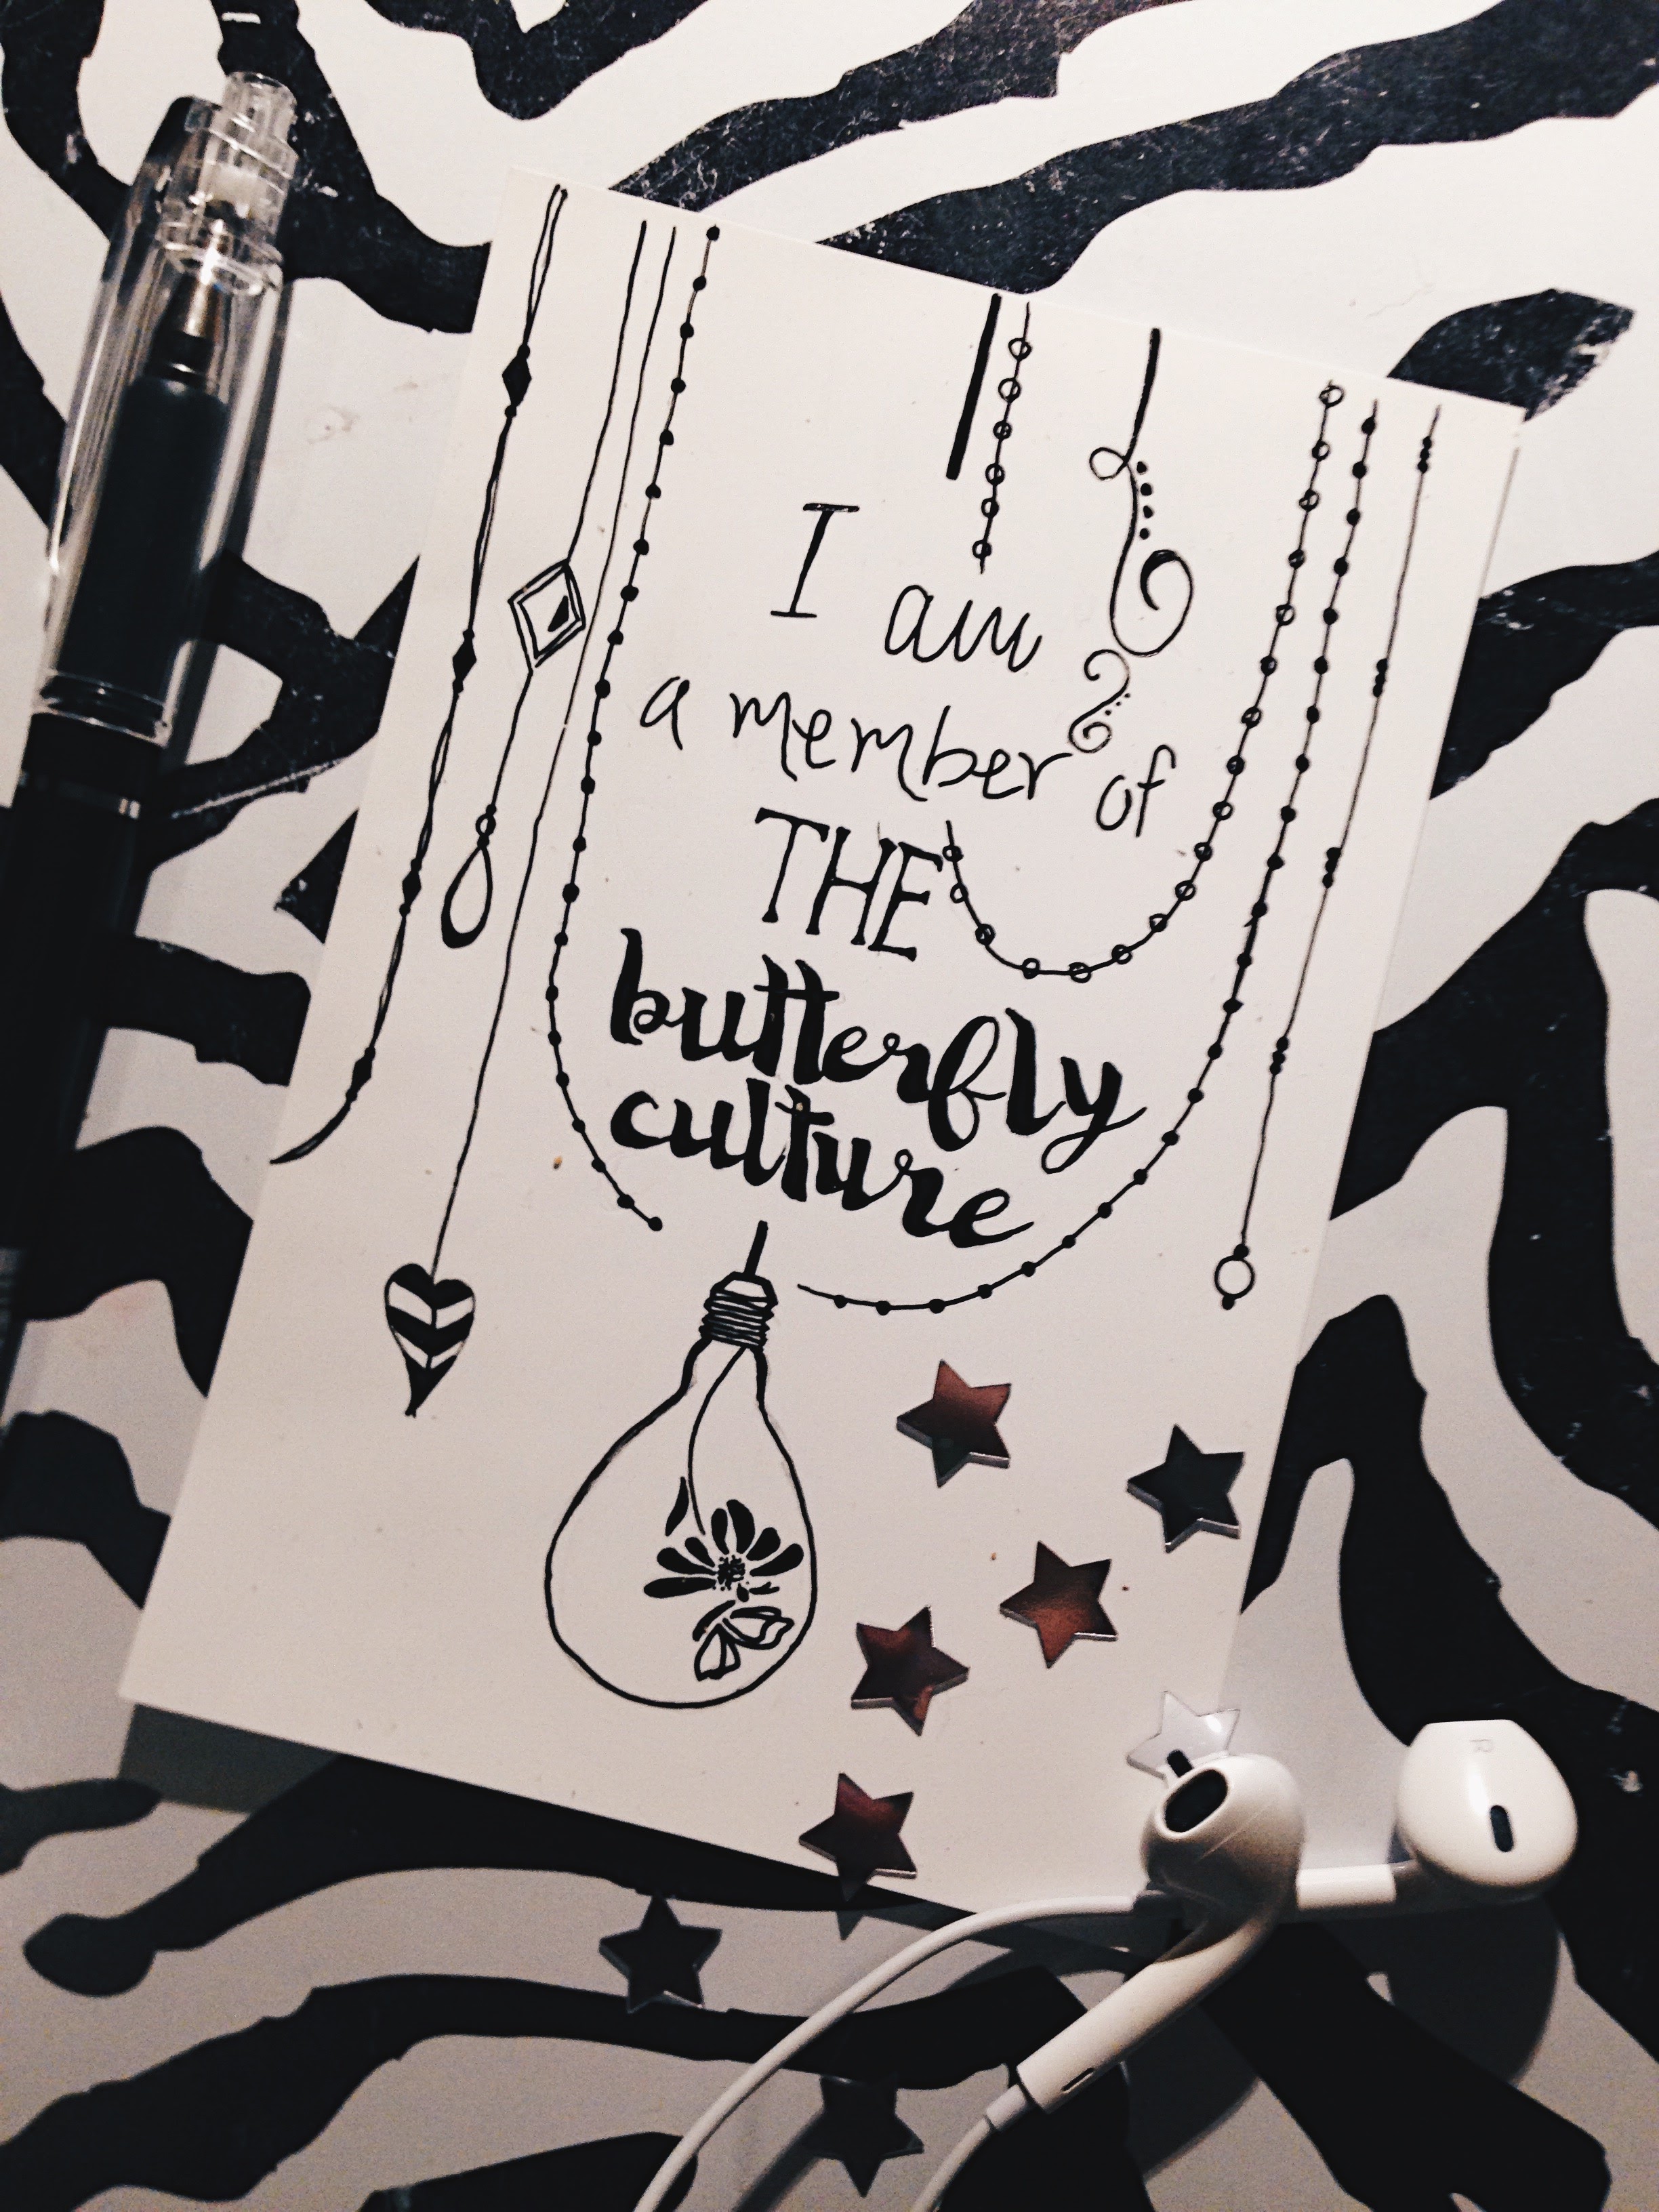 I am
a member of
THE
butterfly
culture
R